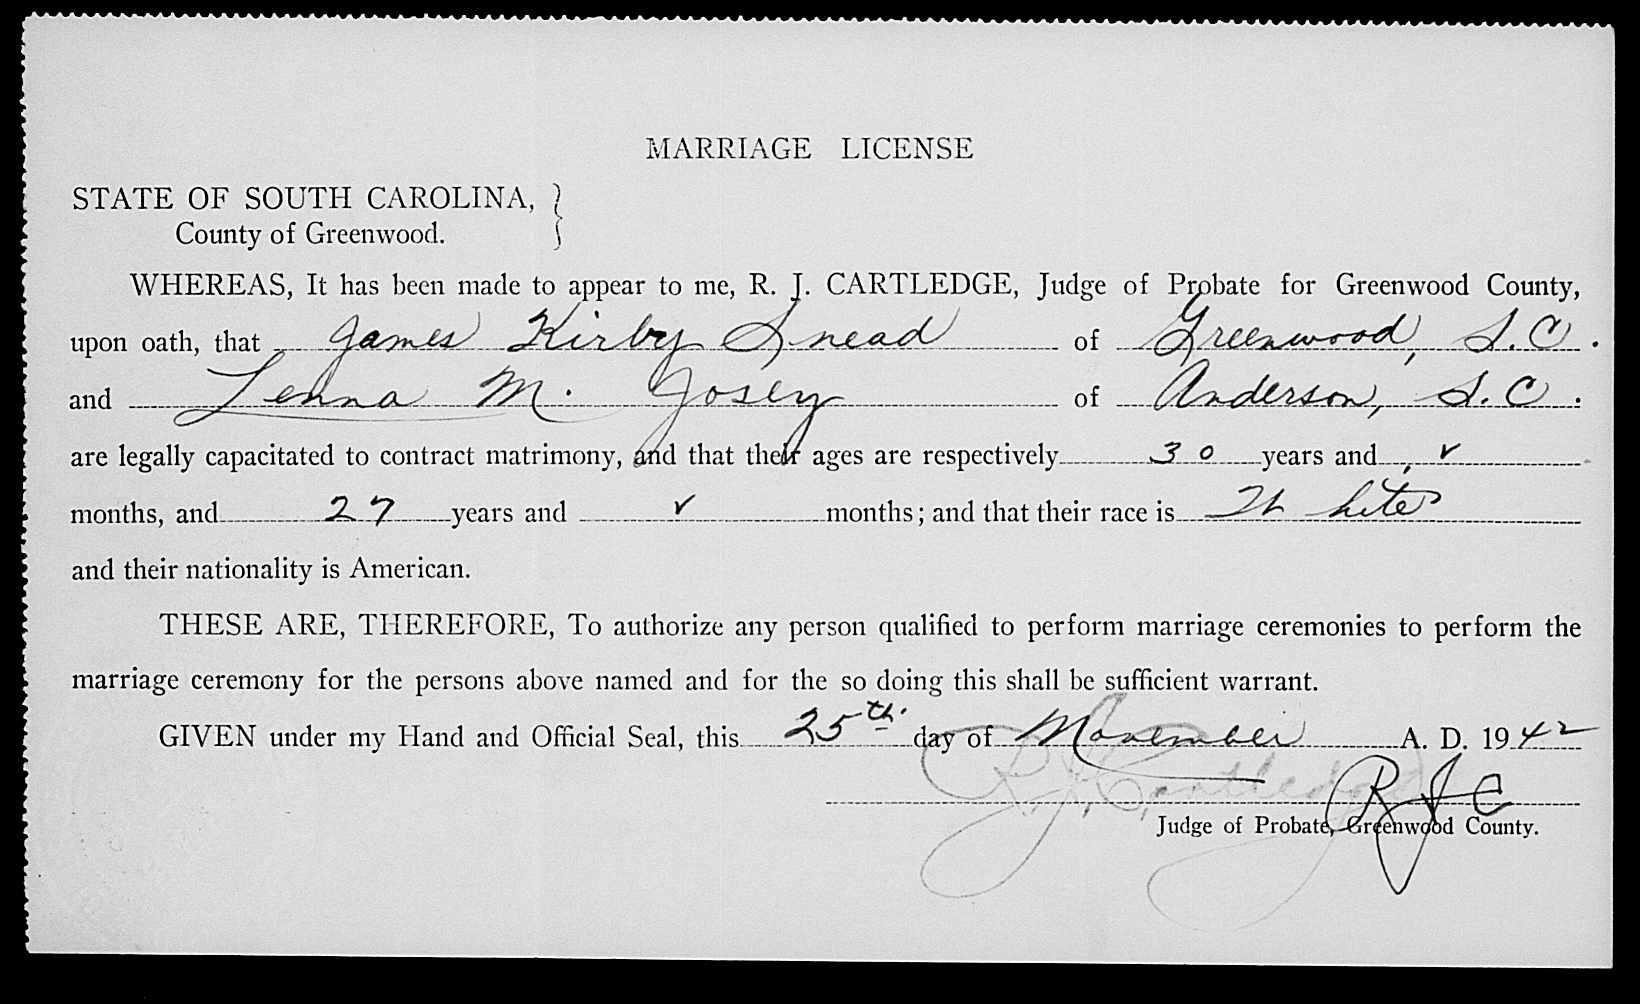 MARRIAGE LICENSE
STATE OF SOUTH CAROLINA, }
County of Greenwood.
WHEREAS, It has been made to appear to me, R. J. CARTLEDGE, Judge of Probate for Greenwood County,
upon oath, that James Kirby Snead of Greenwood, S.C.
and Lenna M. Josey of Anderson, S.C.
are legally capacitated to contract matrimony, and that their ages are respectively 30 years and ✓
months, and 27 years and ✓ months; and that their race is White
and their nationality is American.
THESE ARE, THEREFORE, To authorize any person qualified to perform marriage ceremonies to perform the
marriage ceremony for the persons above named and for the so doing this shall be sufficient warrant.
GIVEN under my Hand and Official Seal, this 25th. day of November A. D. 1942
R. J. Cartledge RJC
Judge of Probate, Greenwood County.